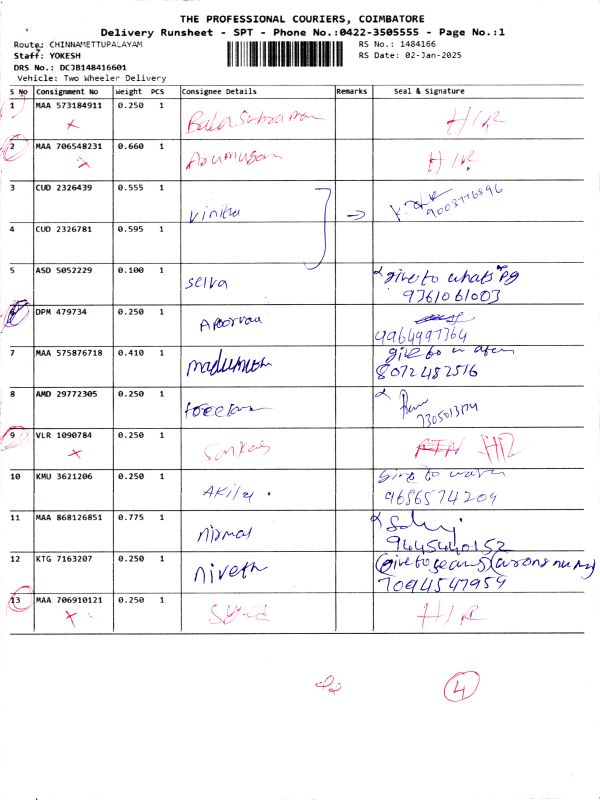 THE PROFESSIONAL COURIERS, COIMBATORE
Delivery Runsheet - SPT - Phone No.:0422-3505555 - Page No.:1
Route: CHINNAMETTUPALAYAM RS No.: 1484166
Staff: YOKESH RS Date: 02-Jan-2025
DRS No.: DCJB148416601
Vehicle: Two Wheeler Delivery
S No Consignment No Weight PCS Consignee Details Remarks Seal & Signature
1 MAA 573184911 0.250 1 Balasubraman H/R
2 MAA 706548231 0.660 1 Arumugam H/R
3 CUD 2326439 0.555 1 Vinitha 9003776896
4 CUD 2326781 0.595 1
5 ASD 5052229 0.100 1 Selva give to whats
9361061003
6 DPM 479734 0.250 1 Apoorva
9964997364
7 MAA 575876718 0.410 1 give to
8072482516
8 AMD 29772305 0.250 1
9 VLR 1090784 0.250 1 H/R
10 KMU 3621206 0.250 1 Akila
9656574209
11 MAA 868126851 0.775 1 Nirmal
9445440152
12 KTG 7163207 0.250 1 Niveth give to
7094547959
13 MAA 706910121 0.250 1 H/R
4